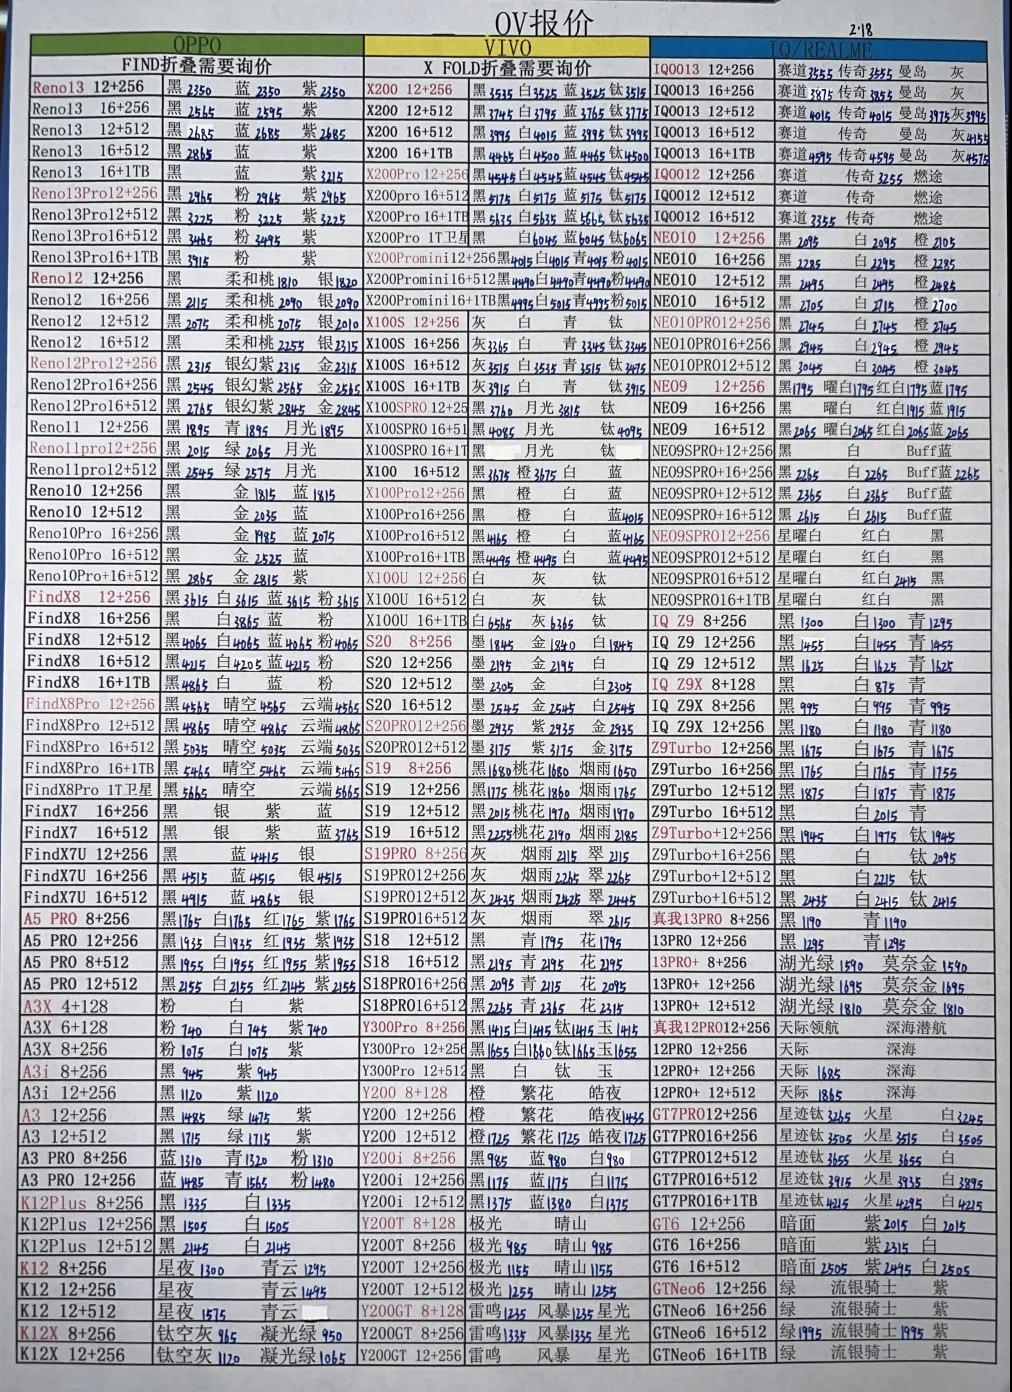 OV报价 2·18
OPPO VIVO IQ/REALME
FIND折叠需要询价 X FOLD折叠需要询价 IQOO13 12+256 赛道3555 传奇3555 曼岛 灰
Reno13 12+256 黑2350 蓝2350 紫2350 X200 12+256 黑3535 白3525 蓝3525 钛3515 IQOO13 16+256 赛道3875 传奇3855 曼岛 灰
Reno13 16+256 黑2565 蓝2595 紫 X200 12+512 黑3745 白3795 蓝3765 钛3775 IQOO13 12+512 赛道4015 传奇4015 曼岛3975 灰3995
Reno13 12+512 黑2685 蓝2685 紫2685 X200 16+512 黑3995 白4015 蓝3995 钛3995 IQOO13 16+512 赛道 传奇 曼岛 灰4155
Reno13 16+512 黑2865 蓝 紫 X200 16+1TB 黑4465 白4500 蓝4465 钛4500 IQOO13 16+1TB 赛道4595 传奇4595 曼岛 灰4575
Reno13 16+1TB 黑 蓝 紫3215 X200Pro 12+256 黑4545 白4545 蓝4545 钛4545 IQOO12 12+256 赛道 传奇3255 燃途
Reno13Pro12+256 黑2965 粉2965 紫2965 X200pro 16+512 黑5175 白5175 蓝5175 钛5175 IQOO12 12+512 赛道 传奇 燃途
Reno13Pro12+512 黑3225 粉3225 紫3225 X200Pro 16+1TB 黑5635 白5635 蓝5665 钛5635 IQOO12 16+512 赛道3355 传奇 燃途
Reno13Pro16+512 黑3465 粉3495 紫 X200Pro 1T卫星 黑 白6045 蓝6045 钛6065 NEO10 12+256 黑2095 白2095 橙2105
Reno13Pro16+1TB 黑3915 粉 紫 X200Promini12+256 黑4015 白4015 青4015 粉4015 NEO10 16+256 黑2285 白2295 橙2285
Reno12 12+256 黑 柔和桃1810 银1820 X200Promini16+512 黑4490 白4490 青4490 粉4490 NEO10 12+512 黑2495 白2495 橙2485
Reno12 16+256 黑2115 柔和桃2090 银2090 X200Promini16+1TB 黑4995 白5015 青4995 粉5015 NEO10 16+512 黑2705 白2715 橙2700
Reno12 12+512 黑2075 柔和桃2075 银2010 X100S 12+256 灰 白 青 钛 NEO10PRO12+256 黑2745 白2745 橙2745
Reno12 16+512 黑 柔和桃2255 银2315 X100S 16+256 灰3365 白 青3345 钛3345 NEO10PRO16+256 黑2945 白2945 橙2945
Reno12Pro12+256 黑2315 银幻紫2315 金2315 X100S 16+512 灰3515 白3535 青3515 钛3475 NEO10PRO12+512 黑3045 白3045 橙3045
Reno12Pro16+256 黑2545 银幻紫2565 金2565 X100S 16+1TB 灰3915 白 青 钛3915 NEO9 12+256 黑1795 曜白1795 红白1795 蓝1795
Reno12Pro16+512 黑2765 银幻紫2845 金2845 X100SPRO 12+25 黑3760 月光3815 钛 NEO9 16+256 黑 曜白 红白1915 蓝1915
Reno11 12+256 黑1895 青1895 月光1895 X100SPRO 16+51 黑4085 月光 钛4095 NEO9 16+512 黑2065 曜白2065 红白2065 蓝2065
Reno11pro12+256 黑2015 绿2065 月光 X100SPRO 16+1T 黑 月光 钛 NEO9SPRO+12+256 黑 白 Buff蓝
Reno11pro12+512 黑2545 绿2575 月光 X100 16+512 黑3675 橙3675 白 蓝 NEO9SPRO+16+256 黑2265 白2265 Buff蓝2265
Reno10 12+256 黑 金1815 蓝1815 X100Pro12+256 黑 橙 白 蓝 NEO9SPRO+12+512 黑2365 白2365 Buff蓝
Reno10 12+512 黑 金2035 蓝 X100Pro16+256 黑 橙 白 蓝4015 NEO9SPRO+16+512 黑2615 白2615 Buff蓝
Reno10Pro 16+256 黑 金1985 蓝2075 X100Pro16+512 黑4165 橙 白 蓝4165 NEO9SPRO12+256 星曜白 红白 黑
Reno10Pro 16+512 黑 金2525 蓝 X100Pro16+1TB 黑4495 橙4495 白 蓝4495 NEO9SPRO12+512 星曜白 红白 黑
Reno10Pro+16+512 黑2865 金2815 紫 X100U 12+256 白 灰 钛 NEO9SPRO16+512 星曜白 红白2415 黑
FindX8 12+256 黑3615 白3615 蓝3615 粉3615 X100U 16+512 白 灰 钛 NEO9SPRO16+1TB 星曜白 红白 黑
FindX8 16+256 黑 白3865 蓝 粉 X100U 16+1TB 白6565 灰6365 钛 IQ Z9 8+256 黑1300 白1300 青1295
FindX8 12+512 黑4065 白4065 蓝4065 粉4065 S20 8+256 墨1845 金1840 白1845 IQ Z9 12+256 黑1455 白1455 青1455
FindX8 16+512 黑4215 白4205 蓝4215 粉 S20 12+256 墨2195 金2195 白 IQ Z9 12+512 黑1625 白1625 青1625
FindX8 16+1TB 黑4865 白 蓝 粉 S20 12+512 墨2305 金 白2305 IQ Z9X 8+128 黑 白875 青
FindX8Pro 12+256 黑4565 晴空4565 云端4565 S20 16+512 墨2545 金2545 白2545 IQ Z9X 8+256 黑995 白995 青995
FindX8Pro 12+512 黑4865 晴空4865 云端4865 S20PRO12+256 墨2935 紫2935 金2935 IQ Z9X 12+256 黑1180 白1180 青1180
FindX8Pro 16+512 黑5035 晴空5035 云端5035 S20PRO12+512 墨3175 紫3175 金3175 Z9Turbo 12+256 黑1675 白1675 青1675
FindX8Pro 16+1TB 黑5465 晴空5465 云端5465 S19 8+256 黑1680 桃花1680 烟雨1650 Z9Turbo 16+256 黑1765 白1765 青1755
FindX8Pro 1T卫星 黑5665 晴空 云端5665 S19 12+256 黑1775 桃花1860 烟雨1765 Z9Turbo 12+512 黑1875 白1875 青1875
FindX7 16+256 黑 银 紫 蓝 S19 12+512 黑2015 桃花1970 烟雨1970 Z9Turbo 16+512 黑 白2015 青
FindX7 16+512 黑 银 紫 蓝3765 S19 16+512 黑2255 桃花2190 烟雨2185 Z9Turbo+12+256 黑1945 白1975 钛1945
FindX7U 12+256 黑 蓝4415 银 S19PRO 8+256 灰 烟雨2115 翠2115 Z9Turbo+16+256 黑 白 钛2095
FindX7U 16+256 黑4515 蓝4515 银4515 S19PRO12+256 灰 烟雨2265 翠2265 Z9Turbo+12+512 黑 白2215 钛
FindX7U 16+512 黑4915 蓝4865 银 S19PRO12+512 灰2435 烟雨2425 翠2445 Z9Turbo+16+512 黑2435 白2415 钛2415
A5 PRO 8+256 黑1765 白1765 红1765 紫1765 S19PRO16+512 灰 烟雨 翠2615 真我13PRO 8+256 黑1190 青1190
A5 PRO 12+256 黑1935 白1935 红1935 紫1935 S18 12+512 黑 青1795 花1795 13PRO 12+256 黑1295 青1295
A5 PRO 8+512 黑1955 白1955 红1955 紫1955 S18 16+512 黑2195 青2195 花2195 13PRO+ 8+256 湖光绿1590 莫奈金1590
A5 PRO 12+512 黑2155 白2155 红2145 紫2155 S18PRO16+256 黑2095 青2115 花2095 13PRO+ 12+256 湖光绿1695 莫奈金1695
A3X 4+128 粉 白 紫 S18PRO16+512 黑2265 青2365 花2315 13PRO+ 12+512 湖光绿1810 莫奈金1810
A3X 6+128 粉740 白745 紫740 Y300Pro 8+256 黑1415 白1415 钛1415 玉1415 真我12PRO12+256 天际领航 深海潜航
A3X 8+256 粉1075 白1075 紫 Y300Pro 12+256 黑1655 白1660 钛1665 玉1655 12PRO 12+256 天际 深海
A3i 8+256 黑945 紫945 Y300Pro 12+512 黑 白 钛 玉 12PRO+ 12+256 天际1685 深海
A3i 12+256 黑1120 紫1120 Y200 8+128 橙 繁花 皓夜 12PRO+ 12+512 天际1865 深海
A3 12+256 黑1485 绿1475 紫 Y200 12+256 橙 繁花 皓夜1435 GT7PRO12+256 星迹钛3265 火星 白3245
A3 12+512 黑1715 绿1715 紫 Y200 12+512 橙1725 繁花1725 皓夜1725 GT7PRO16+256 星迹钛3505 火星3515 白3505
A3 PRO 8+256 蓝1310 青1320 粉1310 Y200i 8+256 黑985 蓝980 白980 GT7PRO12+512 星迹钛3655 火星3655 白
A3 PRO 12+256 蓝1485 青1565 粉1480 Y200i 12+256 黑1175 蓝1175 白1175 GT7PRO16+512 星迹钛3915 火星3935 白3895
K12Plus 8+256 黑1335 白1335 Y200i 12+512 黑1375 蓝1380 白1375 GT7PRO16+1TB 星迹钛4215 火星4295 白4215
K12Plus 12+256 黑1505 白1505 Y200T 8+128 极光 晴山 GT6 12+256 暗面 紫2015 白2015
K12Plus 12+512 黑2145 白2145 Y200T 8+256 极光985 晴山985 GT6 16+256 暗面 紫2315 白
K12 8+256 星夜1300 青云1295 Y200T 12+256 极光1155 晴山1155 GT6 16+512 暗面2505 紫2495 白2505
K12 12+256 星夜 青云1495 Y200T 12+512 极光1255 晴山1255 GTNeo6 12+256 绿 流银骑士 紫
K12 12+512 星夜1575 青云 Y200GT 8+128 雷鸣1235 风暴1235 星光 GTNeo6 16+256 绿 流银骑士 紫
K12X 8+256 钛空灰965 凝光绿950 Y200GT 8+256 雷鸣1335 风暴1335 星光 GTNeo6 16+512 绿1995 流银骑士1995 紫
K12X 12+256 钛空灰1120 凝光绿1065 Y200GT 12+256 雷鸣 风暴 星光 GTNeo6 16+1TB 绿 流银骑士 紫